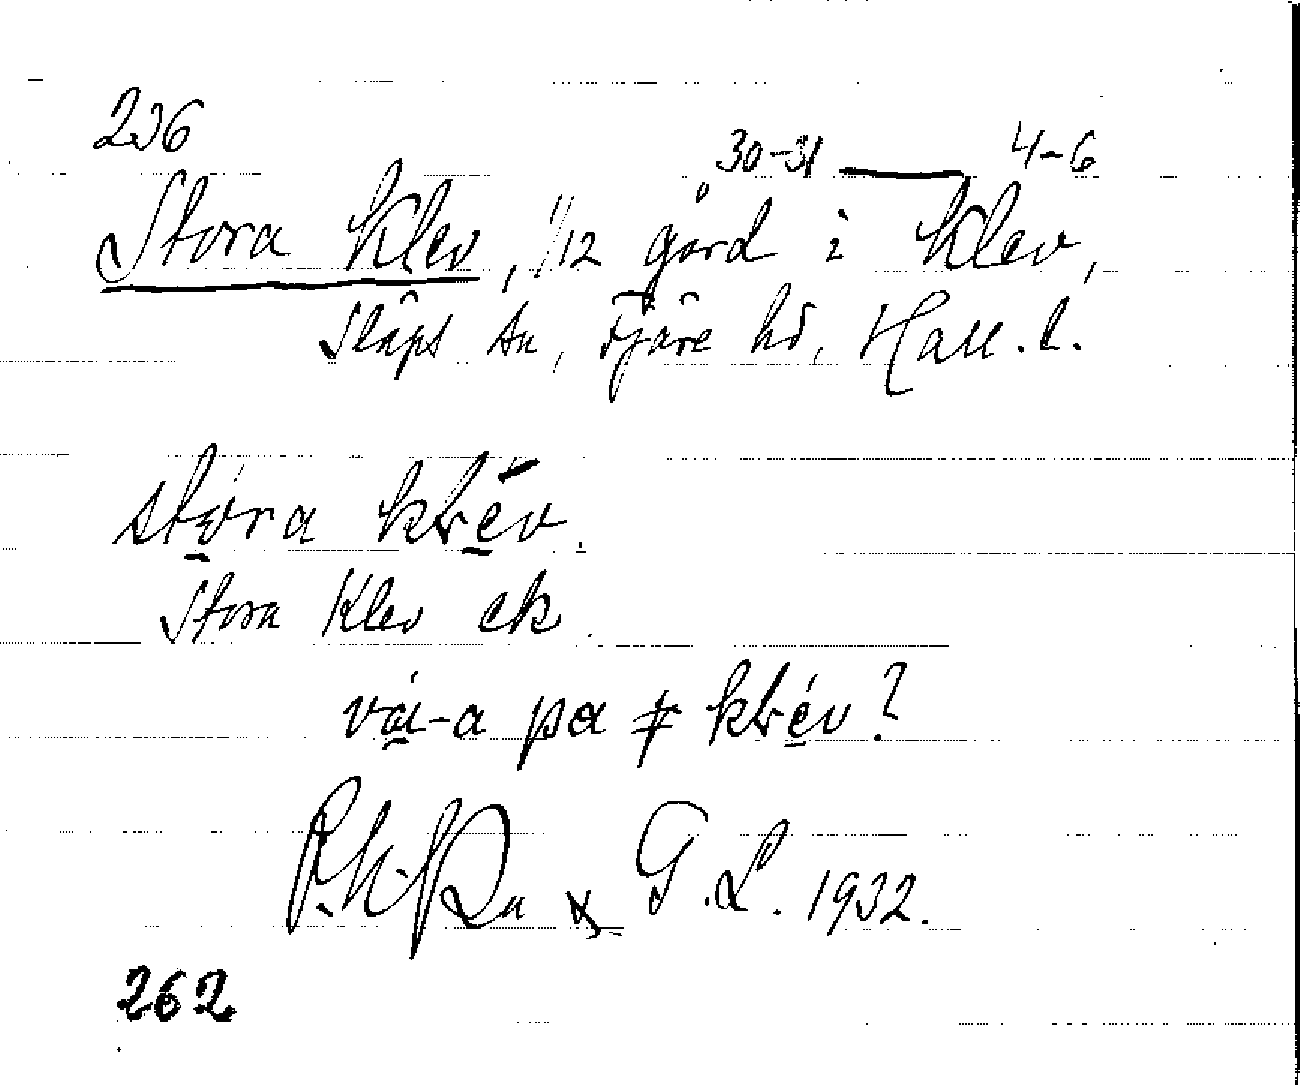 236
30-31 — 4-6
Stora Klev, 1/12 gård i Klev,
Släps sn, Fjäre hd, Hall. l.
stora klev.
Stora Klev ek
vá-a pa klev?
G.L. 1932.
262